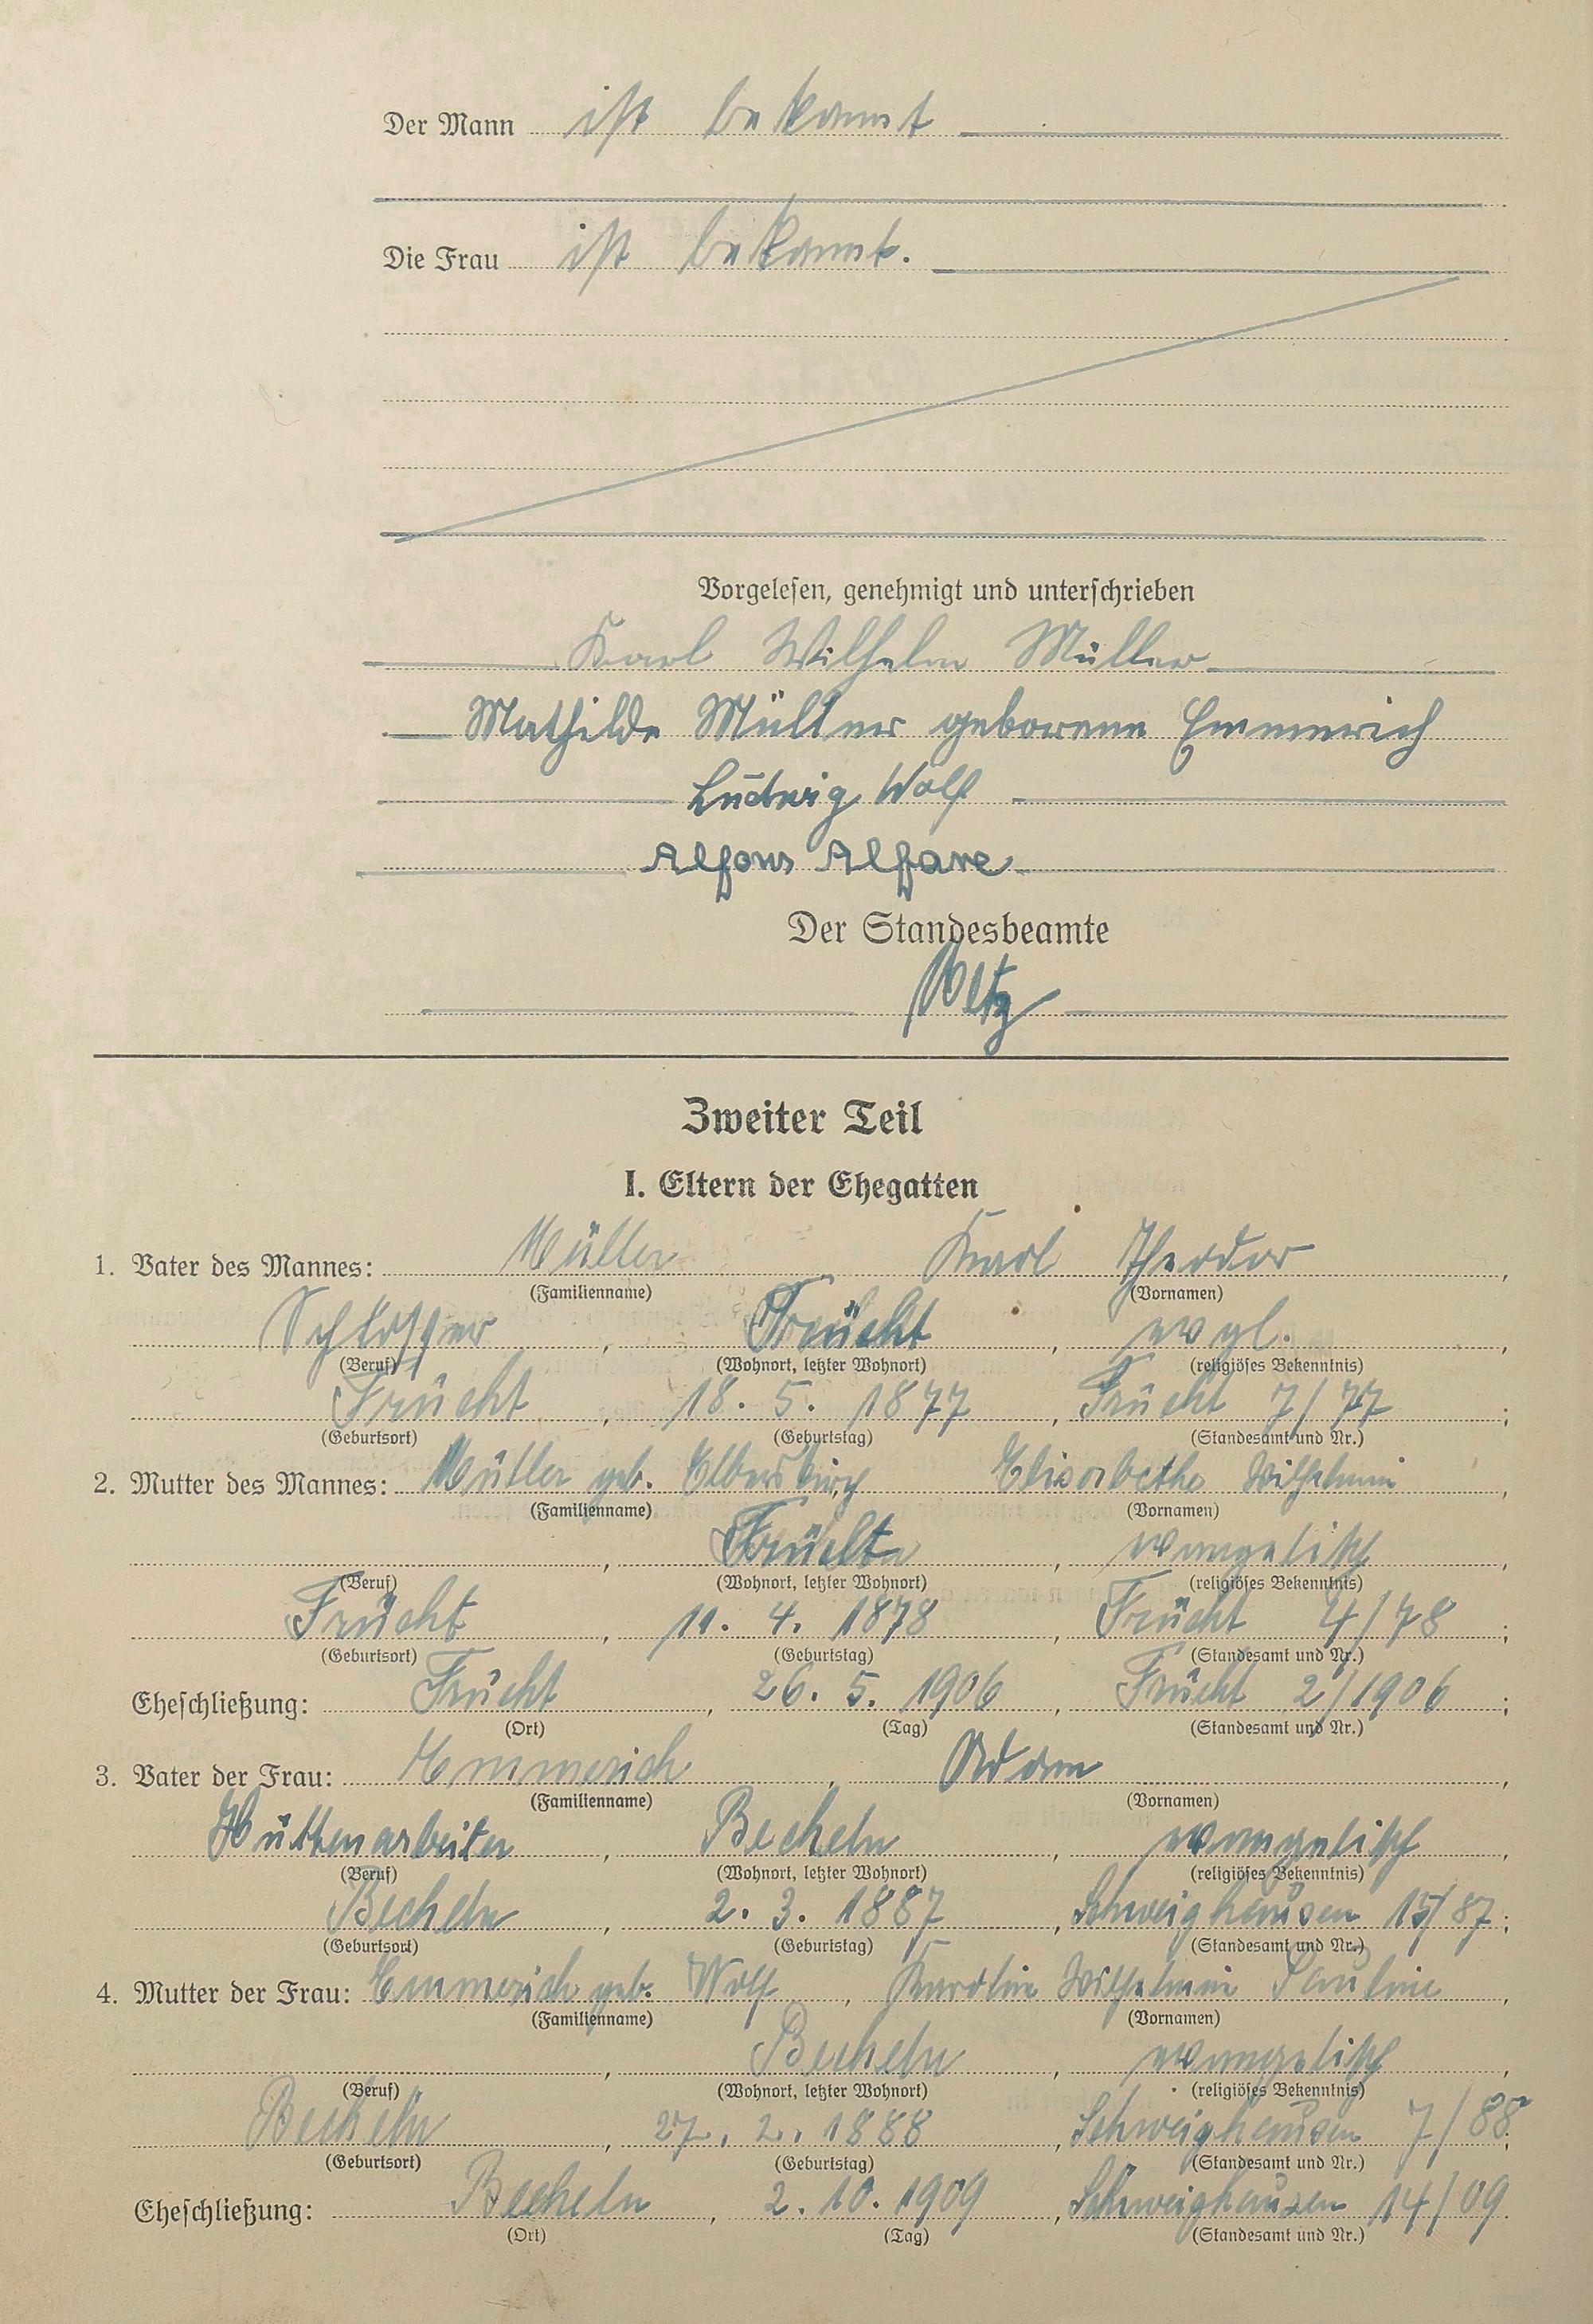 Der Mann ist bekannt
Die Frau ist bekannt.
Vorgelesen, genehmigt und unterschrieben
Karl Wilhelm Müller
Mathilde Müller geborene Emmerich
Ludwig Wolf
Alfons
Der Standesbeamte
Zweiter Teil
I. Eltern der Ehegatten
1. Vater des Mannes: Müller Karl Theodor,
(Familienname) (Vornamen)
Schlosser, Frücht, evgl.,
(Beruf) (Wohnort, letzter Wohnort) (religiöses Bekenntnis)
Frücht, 18. 5. 1877, Frücht 7/77;
(Geburtsort) (Geburtstag) (Standesamt und Nr.)
2. Mutter des Mannes: Müller geb. Elisabethe Wilhelmine,
(Familienname) (Vornamen)
, Frücht, evangelisch,
(Beruf) (Wohnort, letzter Wohnort) (religiöses Bekenntnis)
Frücht, 11. 4. 1878, Frücht 4/78;
(Geburtsort) (Geburtstag) (Standesamt und Nr.)
Eheschließung: Frücht, 26. 5. 1906, Frücht 2/1906;
(Ort) (Tag) (Standesamt und Nr.)
3. Vater der Frau: Emmerich, Adam,
(Familienname) (Vornamen)
Hüttenarbeiter, Becheln, evangelisch,
(Beruf) (Wohnort, letzter Wohnort) (religiöses Bekenntnis)
Becheln, 2. 3. 1887, Schweighausen 15/87;
(Geburtsort) (Geburtstag) (Standesamt und Nr.)
4. Mutter der Frau: Emmerich geb. Wolf, Karolin Wilhelmine Pauline,
(Familienname) (Vornamen)
, Becheln, evangelisch,
(Beruf) (Wohnort, letzter Wohnort) (religiöses Bekenntnis)
Becheln, 27. 2. 1888, Schweighausen 7/88;
(Geburtsort) (Geburtstag) (Standesamt und Nr.)
Eheschließung: Becheln, 2. 10. 1909, Schweighausen 14/09.
(Ort) (Tag) (Standesamt und Nr.)